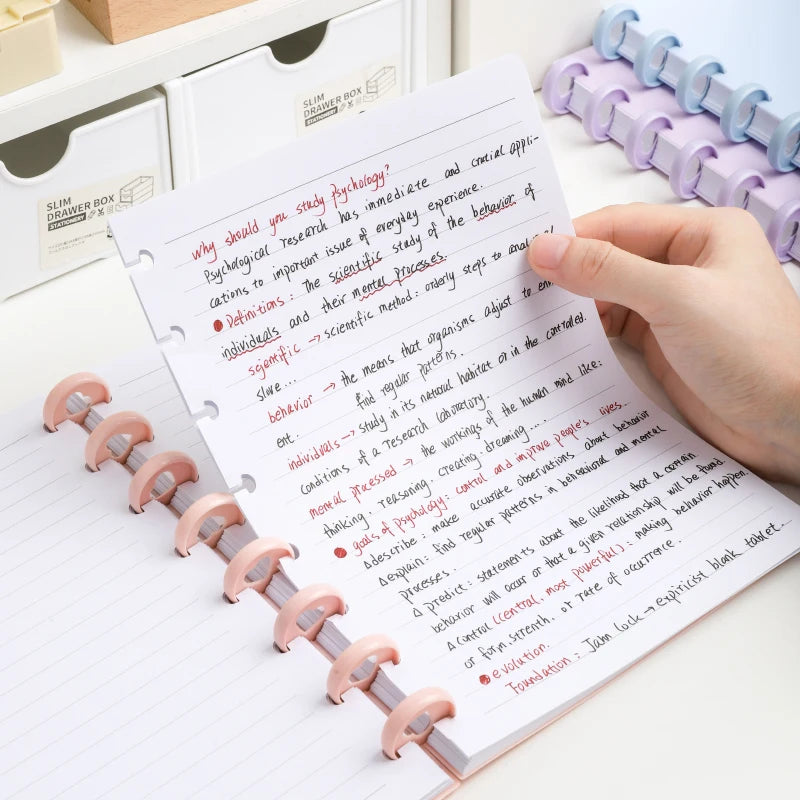 SLIM
DRAWER BOX
STATIONERY
SLIM
DRAWER BOX
STATIONERY
Why should you study Psychology?
Psychological research has immediate and crucial appli-
cations to important issue of everyday experience.
Definitions: The scientific study of the behavior of
individuals and their mental processes.
scientific → scientific method: orderly steps to
slove...
behavior → the means that organisms adjust to
ent. find regular patterns.
individuals → study in its natural habitat or in the controlled.
conditions of a research laboratory.
mental processed → the workings of the human mind like:
thinking. reasoning. creating. dreaming....
goals of psychology: control and improve people's lives.
△describe: make accurate observations about behavior
△explain: find regular patterns in behavioral and mental
processes.
△ predict: statements about the likelihood that a certain
behavior will occur or that a given relationship will be found.
△control (central, most powerful): making behavior happen.
or form, strenth, or rate of occurrence.
evolution.
Foundation: Jam lock → expiricist blank tablet...